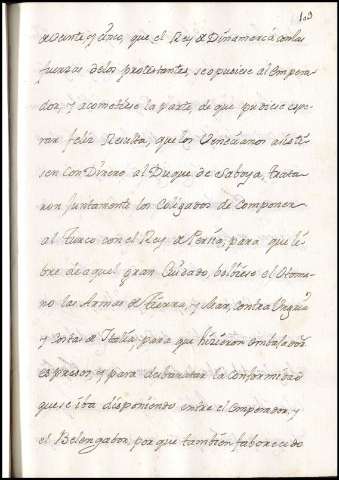 109
de Veinte y Cinco, que el Rey de Dinamarca con las
fuerzas de los protestantes, se opusiese al Empera-
dor, y acometiese la parte, de que pudiese espe-
rar feliz Resulta, que los Venecianos asistie-
sen con Dinero al Duque de Saboya, trata-
ron juntamente los Coligados de Componer
al Turco con el Rey de Persia, para que li-
bre de aquel gran Cuidado, bolviese el Otoma-
no las Armas de Tierra, y Mar, contra Ungria
y costas de Italia, para que hizieron embalador
expresos, y para desbaratar la Conformidad
que se iba disponiendo entre el emperador, y
el Belengabor, por que tambien faborecido